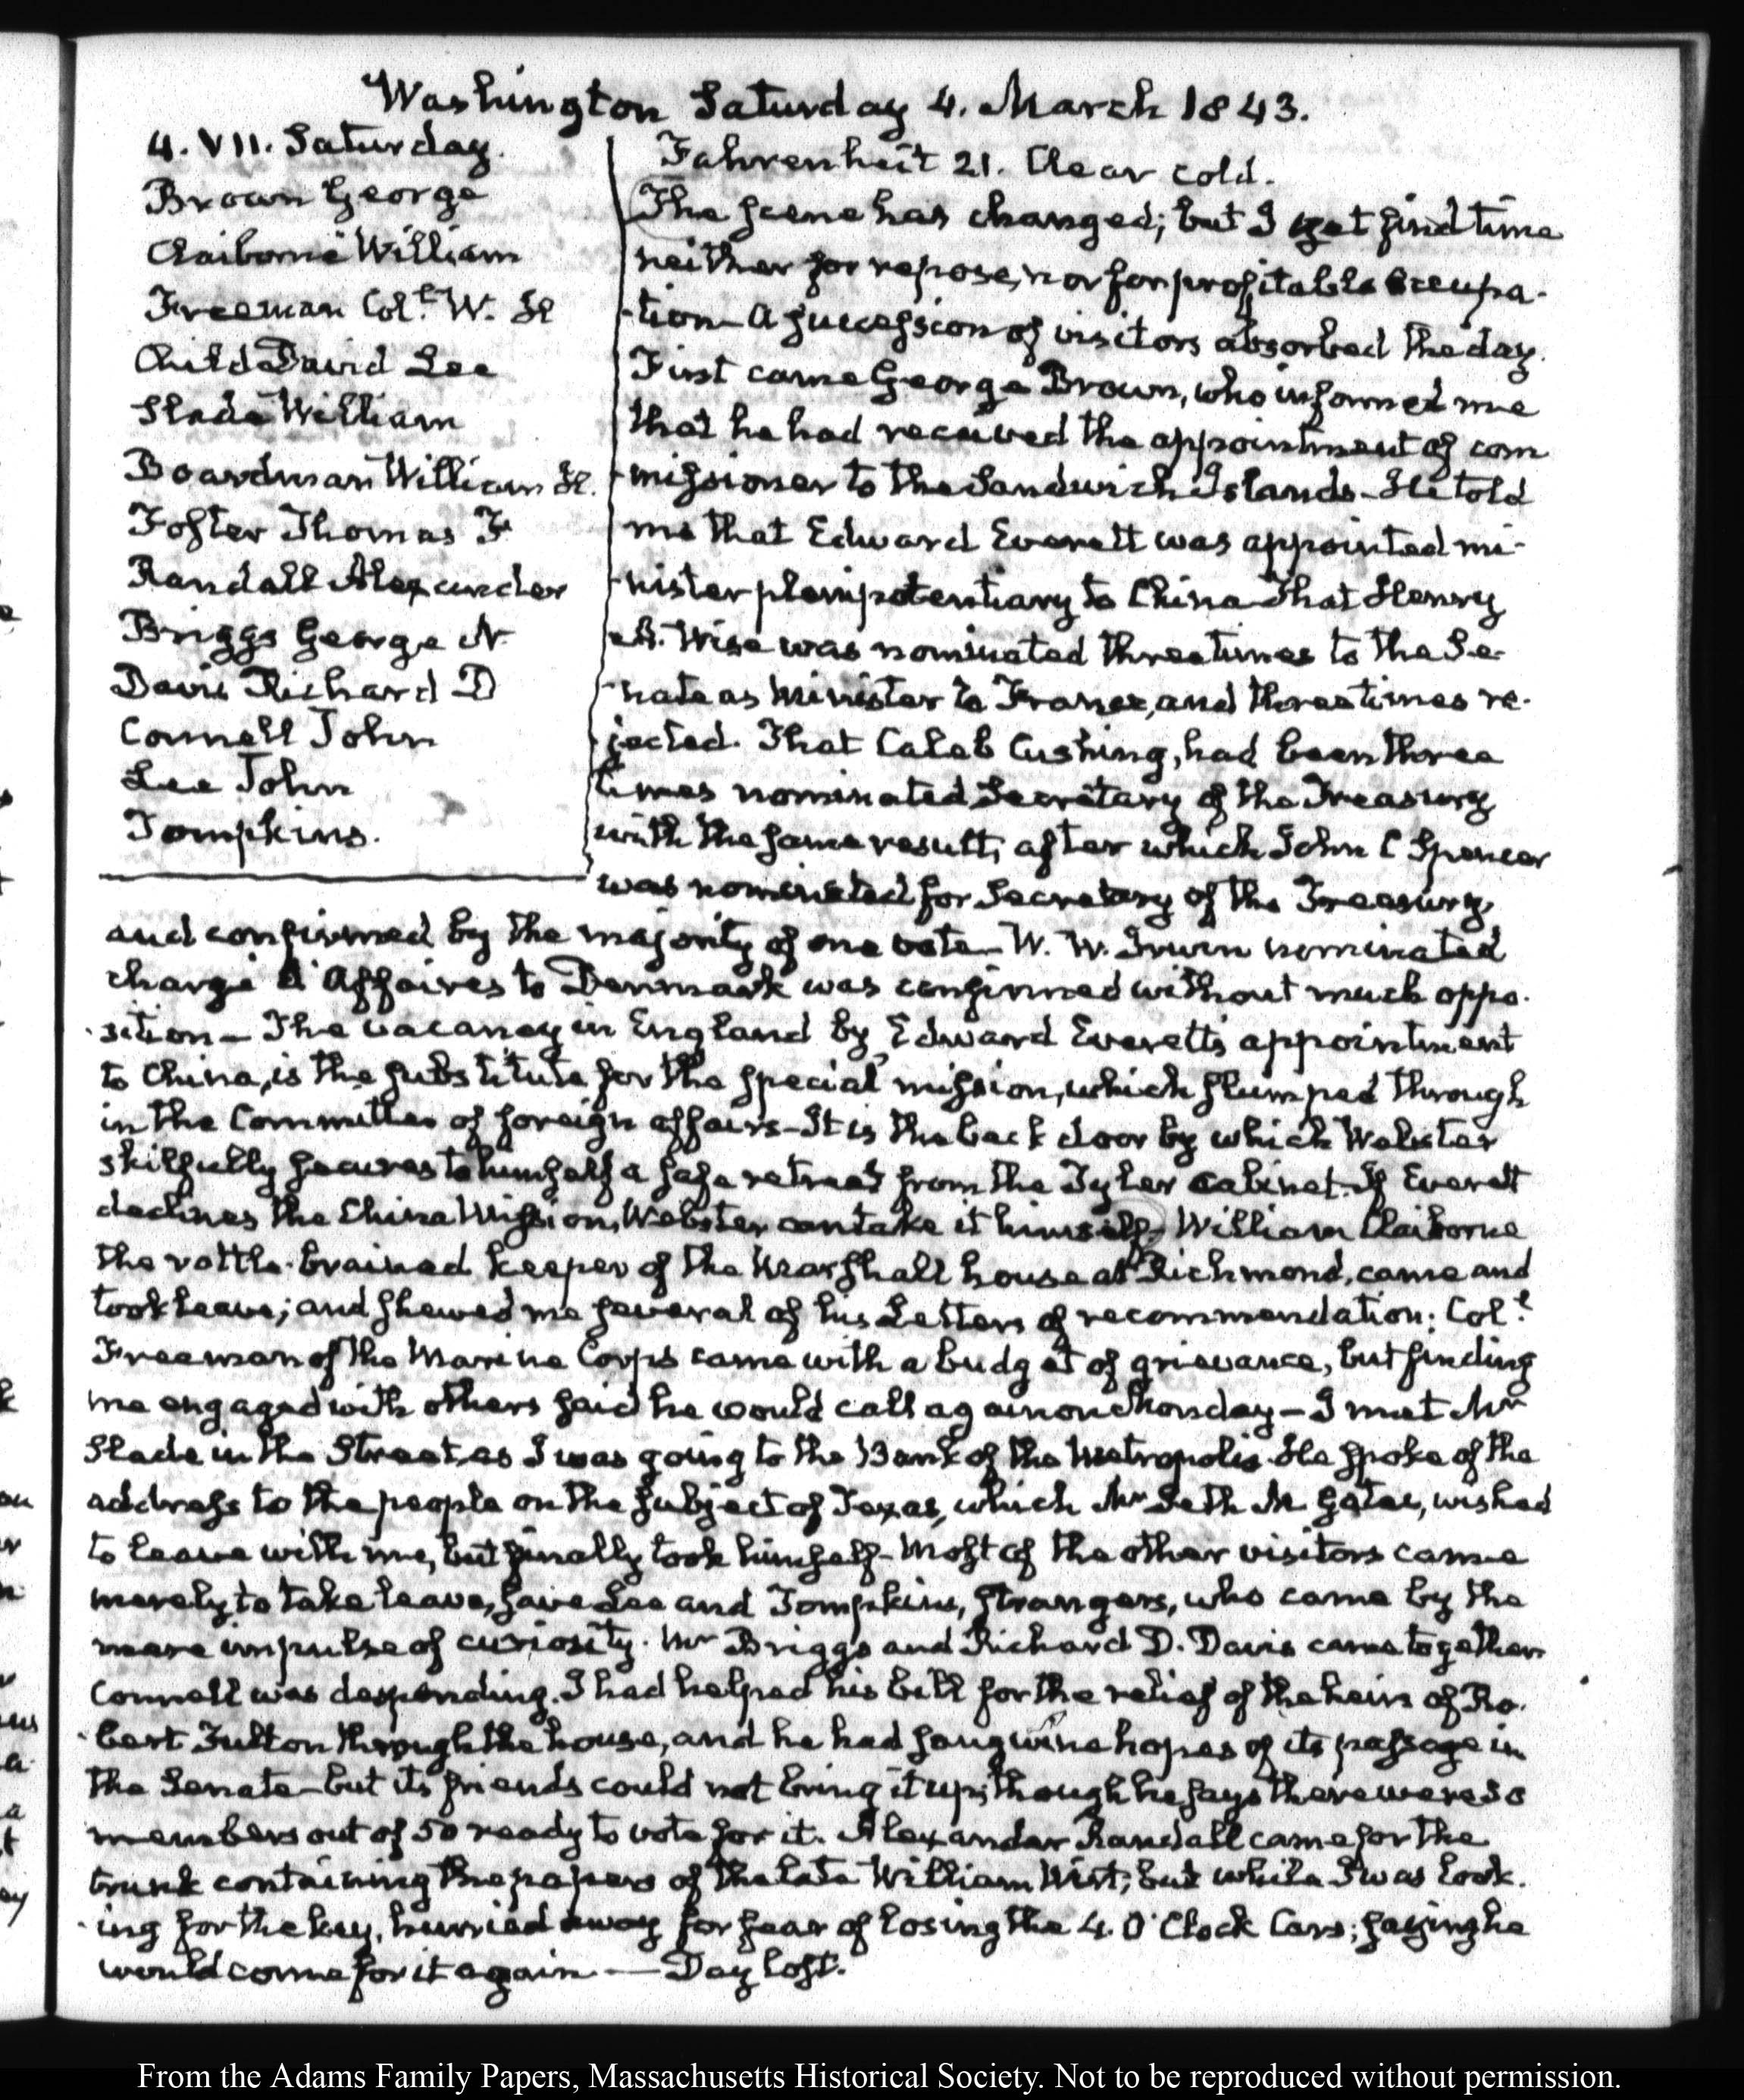 Washington Saturday 4. March 1843.
4. VII. Saturday.
Brown George
Claiborne William
Freeman Col.t W. H
Child David Lee
Slade William
Boardman William H.
Foster Thomas F
Randall Alexander
Briggs George N.
Davis Richard D
Connell John
Lee John
Tompkins.
Fahrenheit 21. Clear cold.
The scene has changed; but I yet find time
neither for repose, nor for profitable occupa-
-tion— A succession of visitors absorbed the day.
First came George Brown, who informed me
that he had received the appointment of com
-missioner to the Sandwich Islands— He told
me that Edward Everett was appointed mi-
-nister plenipotentiary to China— That Henry
A. Wise was nominated three times to the Se-
-nate as Minister to France, and three times re-
jected. That Caleb Cushing, had been three
times nominated Secretary of the Treasury
with the same result; after which John C Spencer
was nominated for Secretary of the Treasury,
and confirmed by the majority of one vote— W. W. Irwin nominated
chargé d'Affaires to Denmark was confirmed without much oppo-
-sition— The vacancy in England by Edward Everett's appointment
to China, is the substitute for the special mission, which slumped through
in the Committee of foreign affairs— It is the back door by which Webster
skilfully secures to himself a safe retreat from the Tyler cabinet. If Everett
declines the China Mission, Webster can take it himself— William Claiborne
the rattle-brained keeper of the Marshall house at Richmond, came and
took leave; and shewed me several of his Letters of recommendation; Col.t
Freeman of the Marine Corps came with a budget of grievance, but finding
me engaged with others said he would call again on Monday— I met Mr
Slade in the Street, as I was going to the Bank of the Metropolis. He spoke of the
address to the people on the subject of Texas, which Mr Seth M Gates, wished
to leave with me, but finally took himself— Most of the other visitors came
merely to take leave, save Lee and Tompkins, strangers, who came by the
mere impulse of curiosity. Mr Briggs and Richard D. Davis came together
Connell was desponding. I had helped his bill for the relief of the heirs of Ro-
-bert Fulton through the house, and he had sanguine hopes of its passage in
the Senate— but its friends could not bring it up; though he says there were 30
members out of 50 ready to vote for it. Alexander Randall came for the
trunk containing the papers of the late William Wirt; but while I was look-
-ing for the key, hurried away for fear of losing the 4. O'Clock Cars; saying he
would come for it again — Day lost.
From the Adams Family Papers, Massachusetts Historical Society. Not to be reproduced without permission.